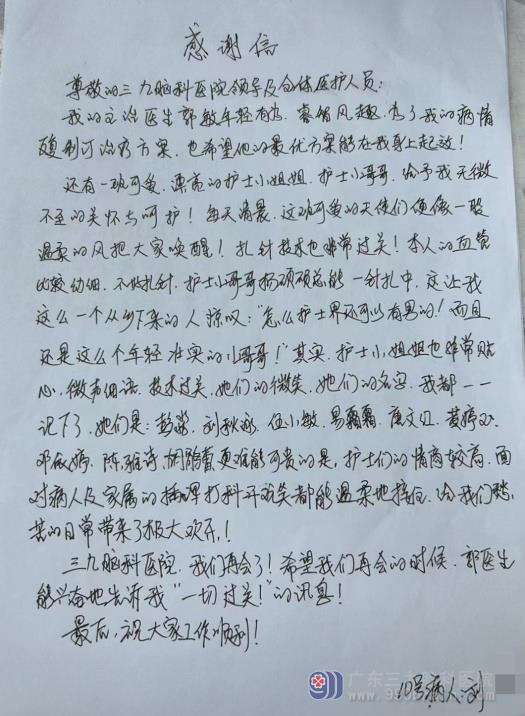 感谢信
尊敬的三九脑科医院领导及全体医护人员：
我的主治医生郭敏年轻有为、睿智风趣，为了我的病情
复制订治疗方案，也希望他的最优方案能在我身上起效！
还有一班可爱、漂亮的护士小姐姐、护士小哥哥，给予我无微
不至的关怀与呵护！每天清晨，这班可爱的天使们便像一股
温柔的风把大家唤醒！扎针技术也非常过关！本人的血管
比较幼细，不好扎针，护士小哥哥杨硕硕总能一针扎中，这让我
这么一个从乡下来的人惊叹："怎么护士界还可以有男的！而且
还是这么个年轻准实的小哥哥！"其实，护士小姐姐也非常贴
心，微声细语，技术过关，她们的微笑，她们的名字，我都一一
记下了，她们是：彭 刘秋 伍小敏、易霜霜、唐文 黄婷
邓 陈雅诗、胡 更难能可贵的是，护士们的情商较高，面
对病人及家属的插哩打科开玩笑都能温柔地接住，给我们愁
苦的日常带来了极大欢乐！
三九脑科医院，我们再会了！希望我们再会的时候，郭医生
能兴奋地告诉我"一切过关！"的讯息！
最后，祝大家工作顺利！
10号病人：刘
广东三九脑科医院